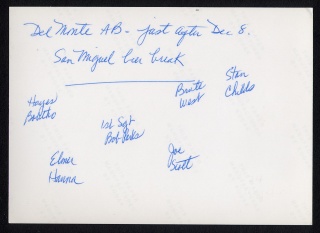 Del Monte AB - just after Dec 8.
San Miguel beer break
Brute
West
Stan
Childs
Hayes
Bolitho
1st Sgt
Bob
Elmer
Hanna
Joe
Scott